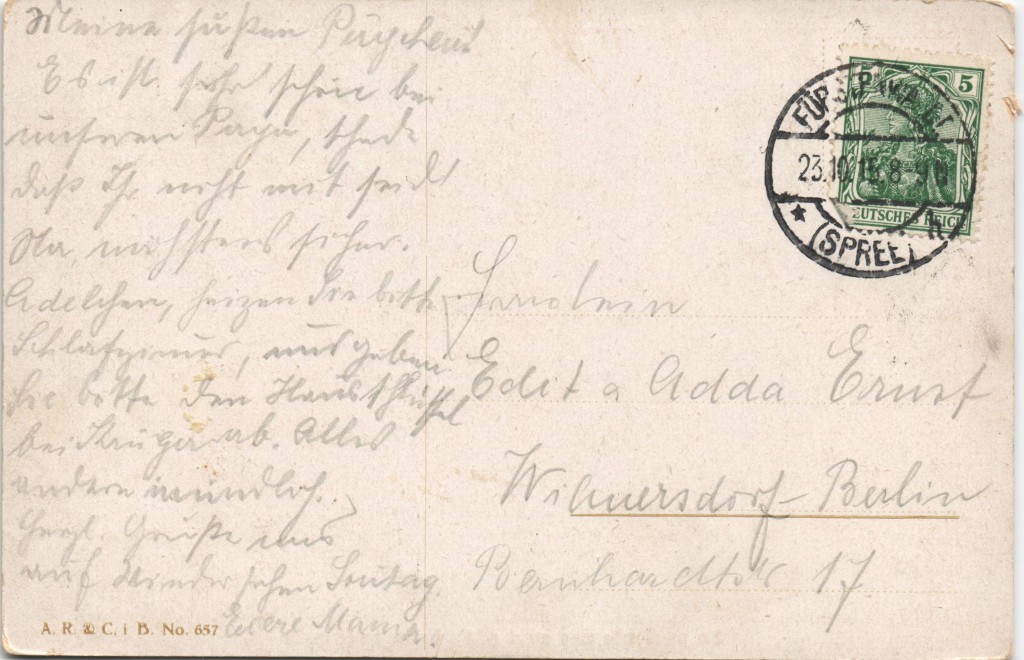 Meine süßen Püppchen!
Es ist sehr schön bei
unserem Papa, schade
daß Ihr nicht mit seid!
Na, nächstens sicher.
Adelchen, heizen Sie bitte
Schlafzimmer, und geben
Sie bitte den Hausschlüssel
bei Krüger ab. Alles
andere mündlich.
Herzl. Grüße und
auf Wiedersehen Sontag.
Euere Mama.
A. R. & C. i B. No. 657
5
DEUTSCHES REICH
FÜRSTENWALDE
23.10.15. 8-9 N
(SPREE)
Fräulein
Edit u Adda Ernst
Wilmersdorf-Berlin
Bernhardtstr 17